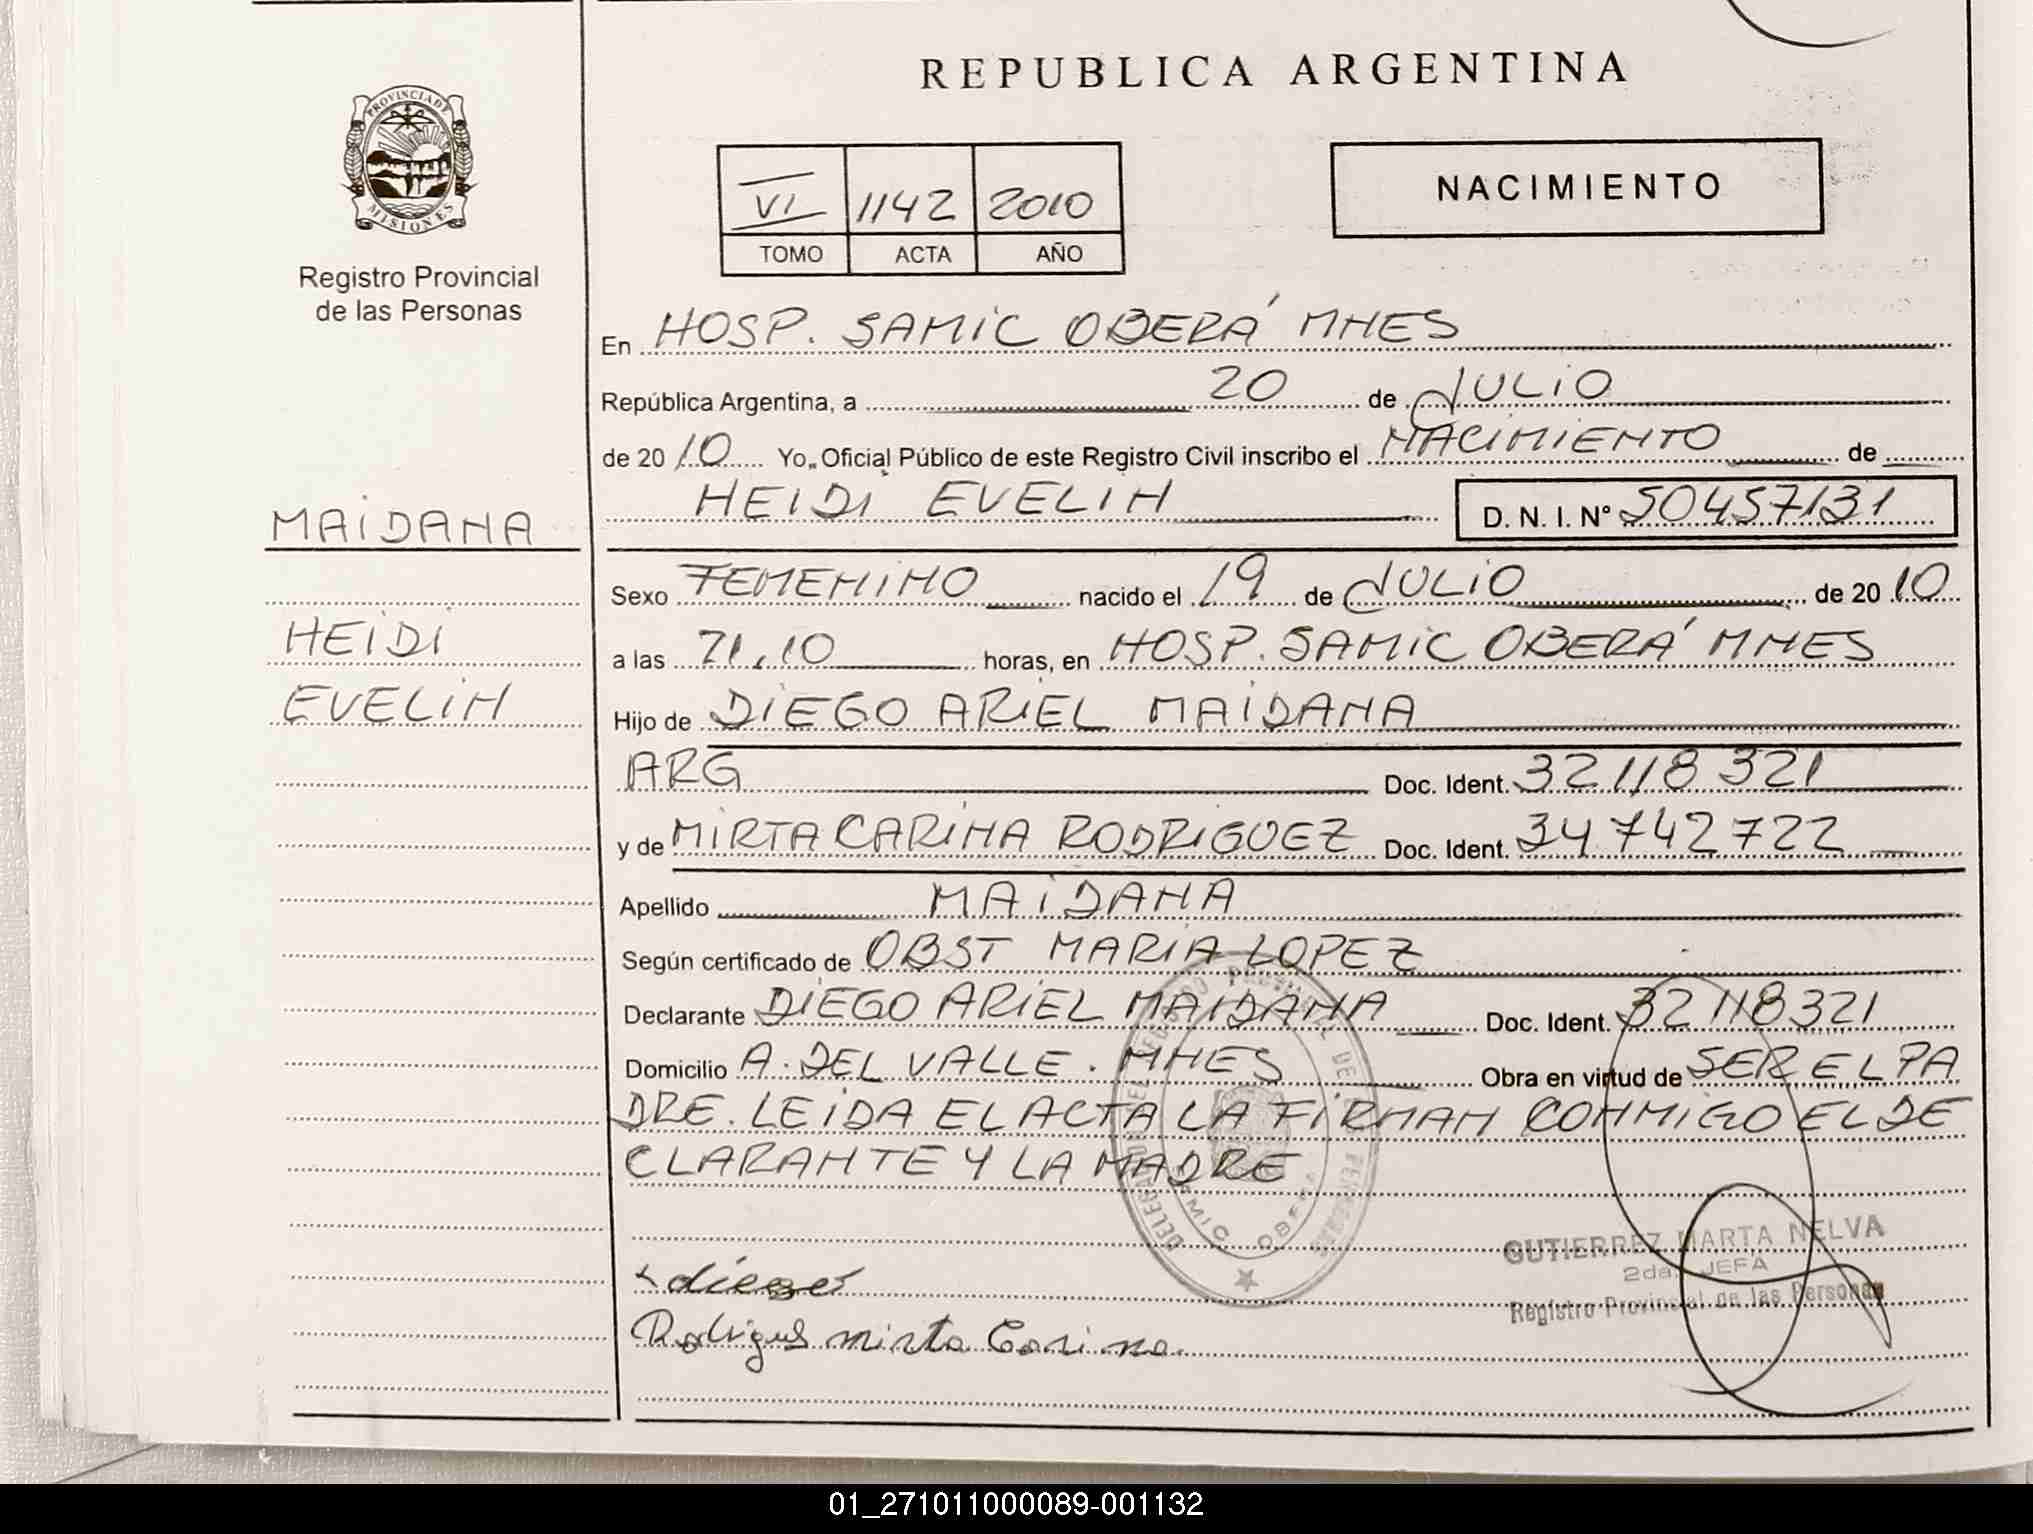 REPUBLICA ARGENTINA
PROVINCIA DE
MISIONES
Registro Provincial
de las Personas
VI 1142 2010
TOMO ACTA AÑO
NACIMIENTO
En HOSP. SAMIC OBERÁ MNES
República Argentina, a 20 de JULIO
de 2010 Yo, Oficial Público de este Registro Civil inscribo el NACIMIENTO de
HEIDI EVELIN D. N. I. Nº 50457131
MAIDANA
HEIDI
EVELIN
Sexo FEMENINO nacido el 19 de JULIO de 2010
a las 21.10 horas, en HOSP. SAMIC OBERÁ MNES
Hijo de DIEGO ARIEL MAIDANA
ARG Doc. Ident. 32118321
y de MIRTA CARINA RODRIGUEZ Doc. Ident. 34742722
Apellido MAIDANA
Según certificado de OBST MARIA LOPEZ
Declarante DIEGO ARIEL MAIDANA Doc. Ident. 32118321
Domicilio A. DEL VALLE. MNES Obra en virtud de SER EL PA
DRE. LEIDA EL ACTA LA FIRMAN CONMIGO EL DE
CLARANTE Y LA MADRE
SAMIC OBERA
GUTIERREZ MARTA NELVA
2da. JEFA
Registro Provincial de las Personas
Mirta Carina
01_271011000089-001132